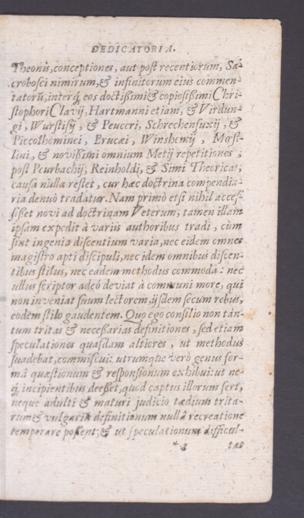 DEDICATORIA.
Theonis, conceptiones, aut post recentiorum, Sa-
crobosci nimirum, & infinitorum eius commen-
tatorũ, interq́; eos doctißimi & copiosißimi Chri-
stophori Clavij, Hartmanni etiam, & Virdun-
gi, Wurstisij, & Peuceri, Schreckenfuxij, &
Piccolhominei, Brucæi, Winshemij, Mæst-
lini, & novißimi omnium Metij repetitiones;
post Peurbachij, Reinholdi, & Simi Theoricas,
causa nulla restet, cur hæc doctrina compendia-
ria denuò tradatur. Nam primò etsi nihil acces-
sißet novi ad doctrinam Veterum, tamen illam
ipsam expedit à variis authoribus tradi, cùm
sint ingenia discentium varia, nec eidem omnes
magistro apti discipuli, nec idem omnibus discen-
tibus stilus, nec eadem methodus commoda: nec
ullus scriptor adeò deviat à communi more, qui
non inveniat suum lectorem iisdem secum rebus,
eodem stilo gaudentem. Quo ego consilio non tan-
tum tritas & necessarias definitiones, sed etiam
speculationes quasdam altiores, ut methodus
suadebat, commiscui: utrumque verò genus for-
mâ quæstionum & responsionum exhibui: ut ne-
q́; incipientibus deeßet, quod captus illorum fert,
neque adulti & maturi judicio tædium trita-
rum & vulgariũ definitionum nullâ recreatione
temperare possent: & ut speculationum difficul-
* 3 tas